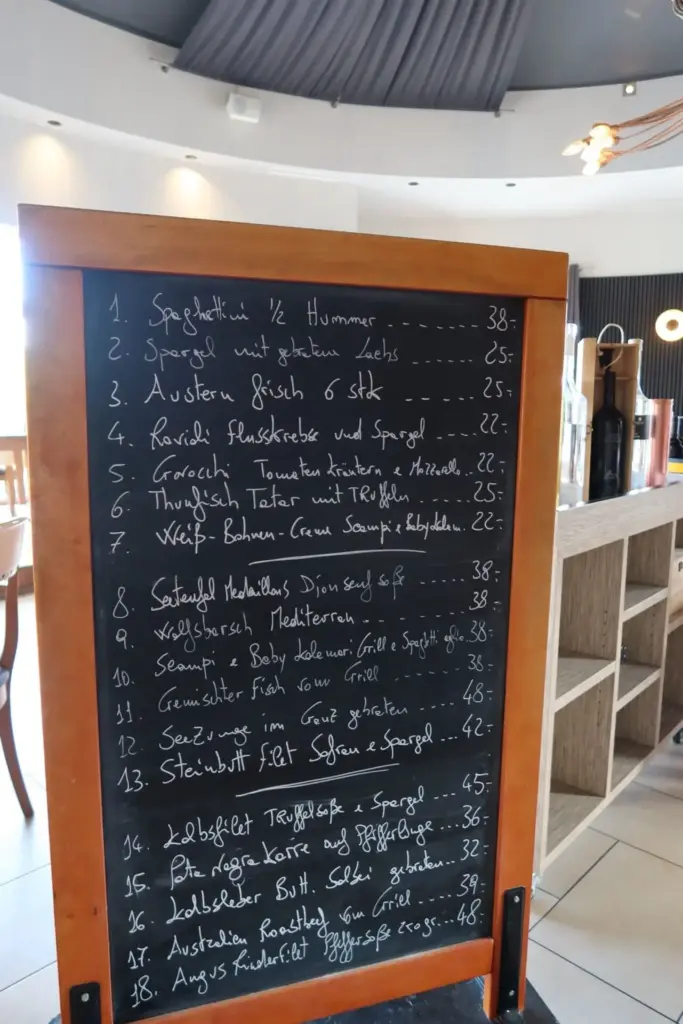 1. Spaghettini 1/2 Hummer ........ 38.-
2. Spargel mit gebratem Lachs ....... 25.-
3. Austern frisch 6 stck ....... 25.-
4. Ravioli flusskrebse und Spargel .... 22.-
5. Gnocchi Tomaten Kräutern e Mozzarella.. 22.-
6. Thunfisch Tatar mit TRüffeln ...... 25.-
7. Weiß-Bohnen-Creme Scampi e Babycalam. 22.-
8. Seeteufel Medaillons Dijonsenfsoße ..... 38.-
9. Wolfsbarsch Mediterran ........ 38.-
10. Scampi e Baby Kalamari Grill e Spaghetti aglio. 38.-
11. Gemischter Fisch vom Grill ....... 38.-
12. SeeZunge im Ganz gebraten ..... 48.-
13. Steinbutt filet Safran e Spargel ... 42.-
14. Kalbsfilet TRüffelsoße e Spargel --- 45.-
15. Pata Negra Karre auf Pfifferlinge ... 36.-
16. Kalbsleber Butt. Salbei gebraten... 32.-
17. Australien Roastbeef vom Grill .... 39.-
18. Angus Rinderfilet Pfeffersoße 250gr... 48.-